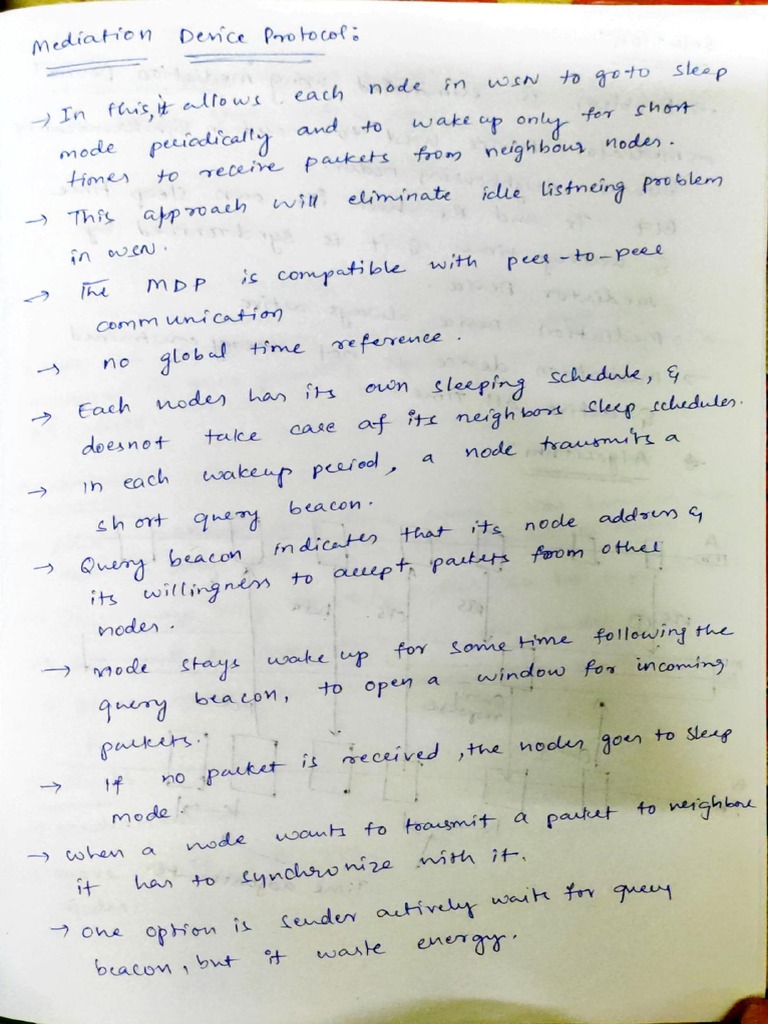 Mediation Device Protocol:
→ In this, it allows each node in WSN to goto sleep
mode periodically and to wake up only for short
times to receive packets from neighbour nodes.
→ This approach will eliminate idle listneing problem
in WSN.
→ The MDP is compatible with peer-to-peer
communication
→ no global time reference.
→ Each nodes has its own sleeping schedule, &
doesnot take care of its neighbors sleep schedules.
→ in each wakeup period, a node transmits a
short query beacon.
→ Query beacon indicates that its node address &
its willingness to accept packets from other
nodes.
→ node stays wake up for some time following the
query beacon, to open a window for incoming
packets.
→ If no packet is received, the nodes goes to sleep
mode.
→ when a node wants to transmit a packet to neighbor
it has to synchronize with it.
→ one option is sender actively waits for query
beacon, but it waste energy.